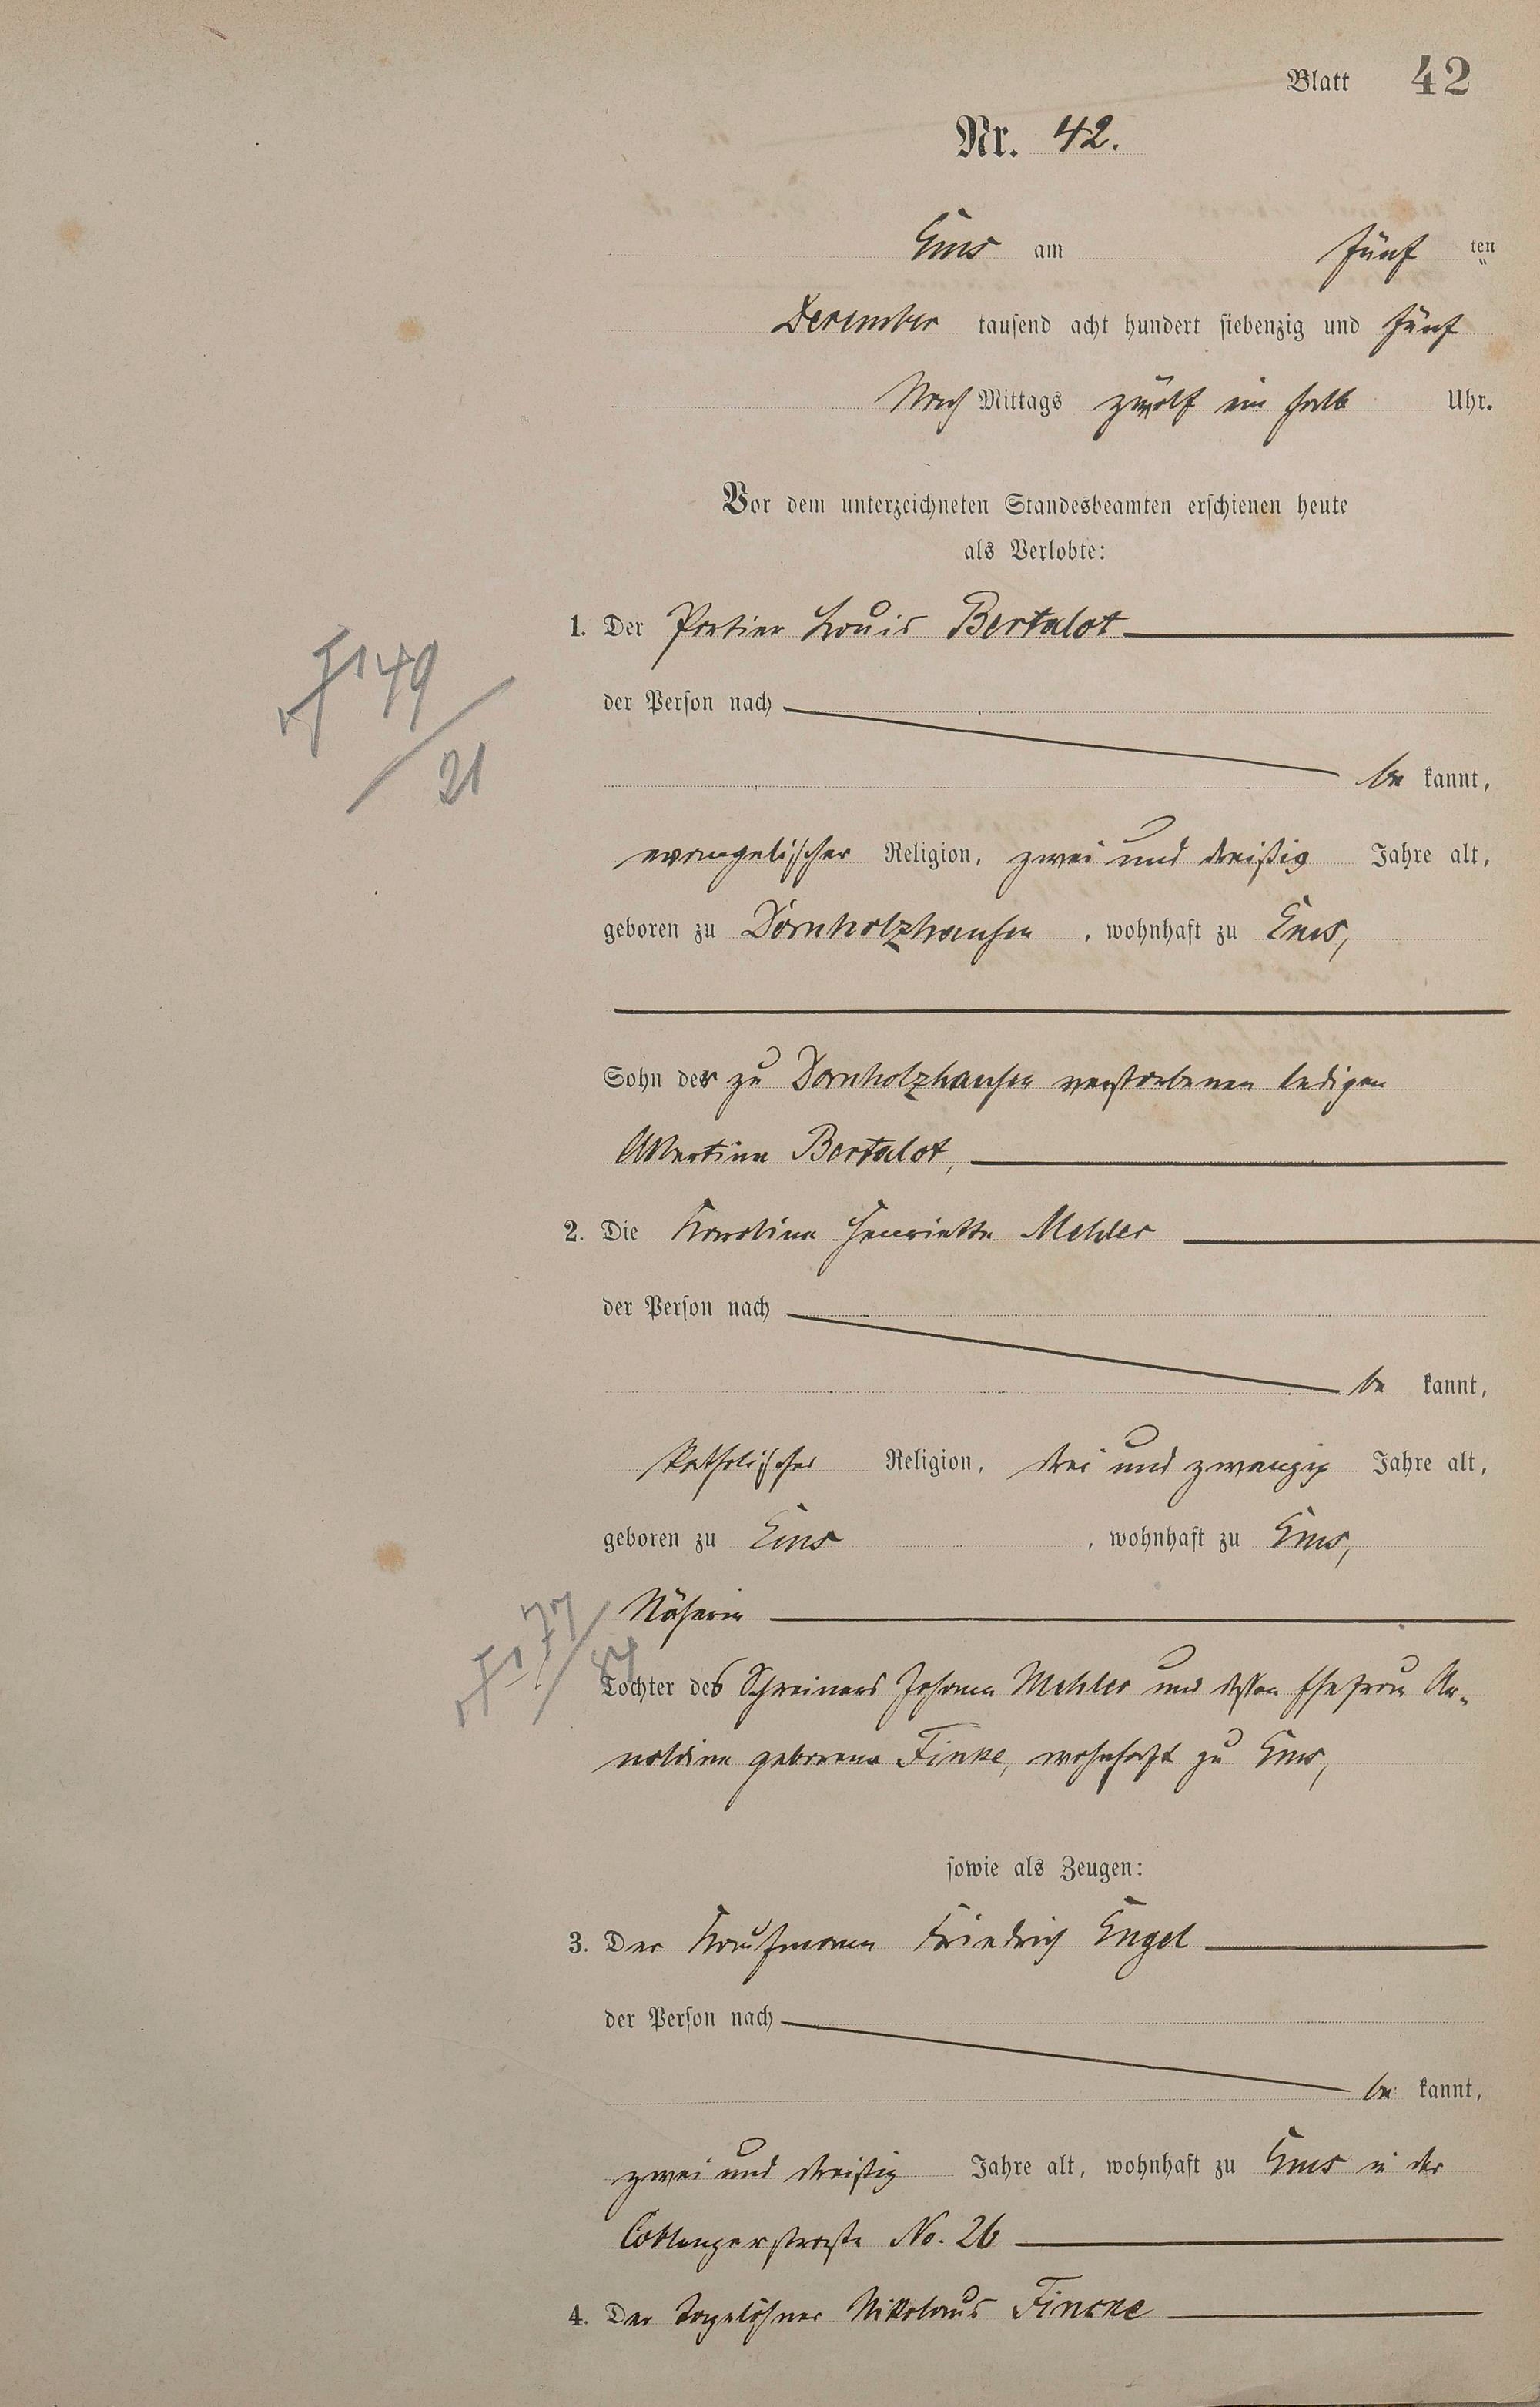 Blatt 42
Nr. 42.
Ems am fünf ten
December tausend acht hundert siebenzig und fünf
Nach Mittags zwölf ein halb Uhr.
Vor dem unterzeichneten Standesbeamten erschienen heute
als Verlobte:
1. Der Portier Louis Bertalot
der Person nach
be kannt,
evangelischer Religion, zwei und dreißig Jahre alt,
geboren zu Dornholzhausen, wohnhaft zu Ems,
Sohn der zu Dornholzhausen verstorbenen ledigen
Albertine Bertalot,
2. Die Karoline Henriette Mehler
der Person nach
be kannt,
katholischer Religion, drei und zwanzig Jahre alt,
geboren zu Ems, wohnhaft zu Ems,
Näherin
Tochter des Schreiners Johann Mehler und dessen Ehefrau Ar-
noldine geborene Finke, wohnhaft zu Ems,
sowie als Zeugen:
3. Der Kaufmann Friedrich Engel
der Person nach
be kannt,
zwei und dreißig Jahre alt, wohnhaft zu Ems in der
Coblenzerstraße No. 26
4. Der Tagelöhner Nikolaus Fincke
149
21
177
84